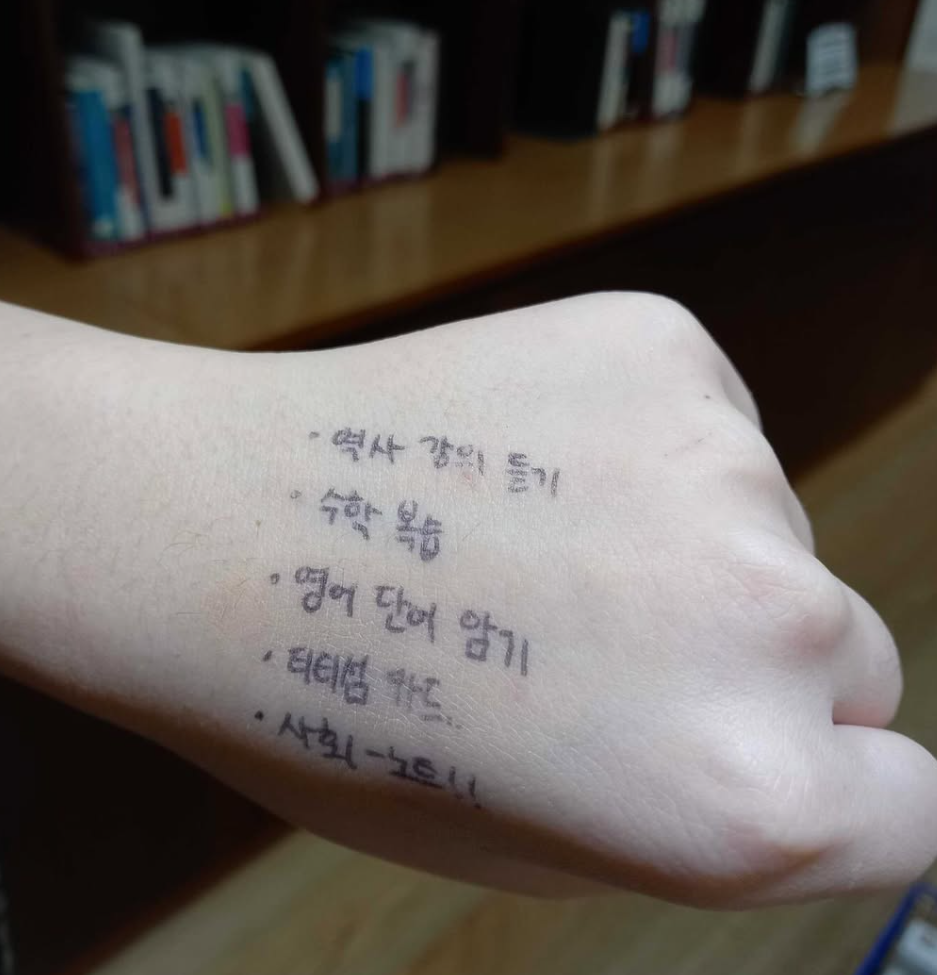 · 역사 강의 듣기
· 수학 복습
· 영어 단어 암기
· 티티섬 카드..
· 사회-노트!!